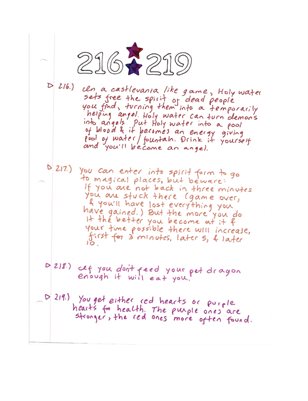 216 219
216.) In a castlevania like game, Holy water
sets free the spirit of dead people
you find, turning them into a temporarily
helping angel. Holy water can turn demons
into angels. Put Holy water into a pool
of blood & it becomes an energy giving
pool of water/fountain. Drink it yourself
and you'll become an angel.
217.) You can enter into spirit form to go
to magical places, but beware!
if you are not back in three minutes
you are stuck there (game over,
& you'll have lost everything you
have gained.) But the more you do
it the better you become at it &
your time possible there will increase,
first for 3 minutes, later 5, & later
10.
218.) If you don't feed your pet dragon
enough it will eat you.
219.) You get either red hearts or purple
hearts for health. The purple ones are
stronger, the red ones more often found.